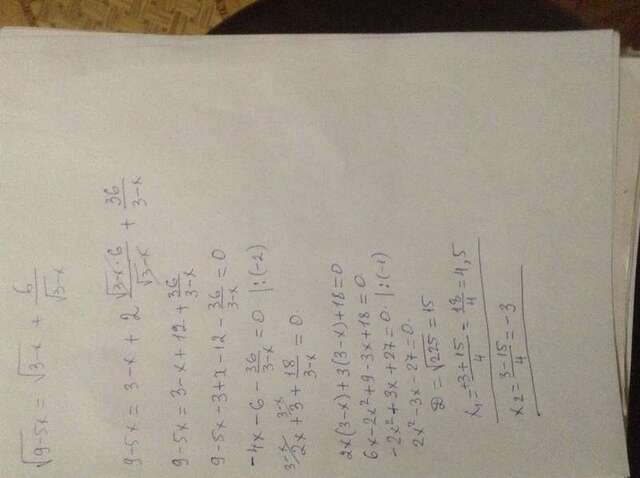 √9-5x = √3-x + 6/√3-x
9-5x = 3-x + 2 √3-x · 6/√3-x + 36/3-x
9-5x = 3-x+12 + 36/3-x
9-5x-3+x-12 - 36/3-x = 0
-4x-6 - 36/3-x = 0 |:(-2)
3-x 3-x
2x+3+ 18/3-x = 0
2x(3-x)+3(3-x)+18=0
6x-2x²+9-3x+18=0
-2x²+3x+27=0. |:(-1)
2x²-3x-27=0.
D = √225 = 15
x₁ = +3+15/4 = 18/4 = 4,5
x₂ = 3-15/4 = -3